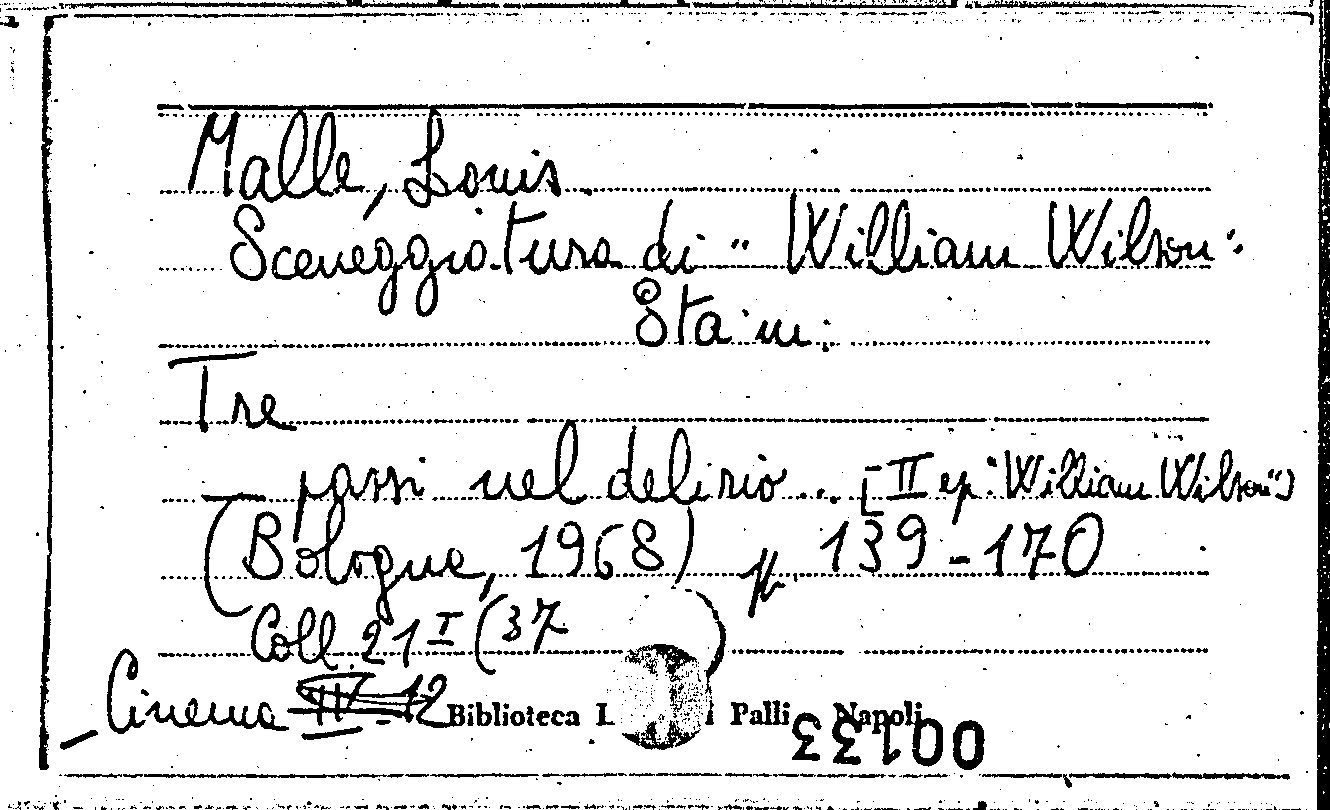 Malle, Louis.
Sceneggiatura di "William Wilson".
Sta in:
Tre
passi nel delirio... [II ep. "William Wilson"]
(Bologna, 1968) p. 139-170
Coll. 21 I (37
Cinema
Biblioteca L i Palli - Napoli
00133